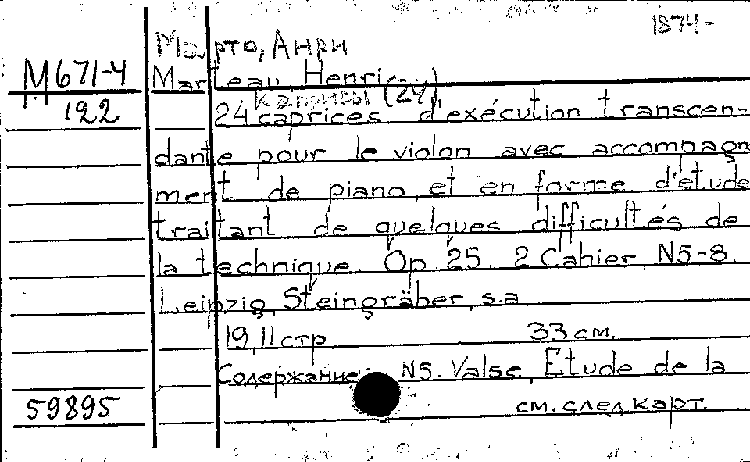 1874-
Марто, Анри
М671-4 Marteau Henri
122 Каприсы (24)
24 caprices d'exécution transcen-
dante pour le violon avec accompagn
ment de piano et en forme d'étude
traitant de quelques difficultés de
la technique. Op. 25. 2 Cahier N5-8.
Leipzig, Steingräber, s.a
19,11 стр 33 см.
Содержание: N5. Valse, Etude de la
59895 см. след карт.